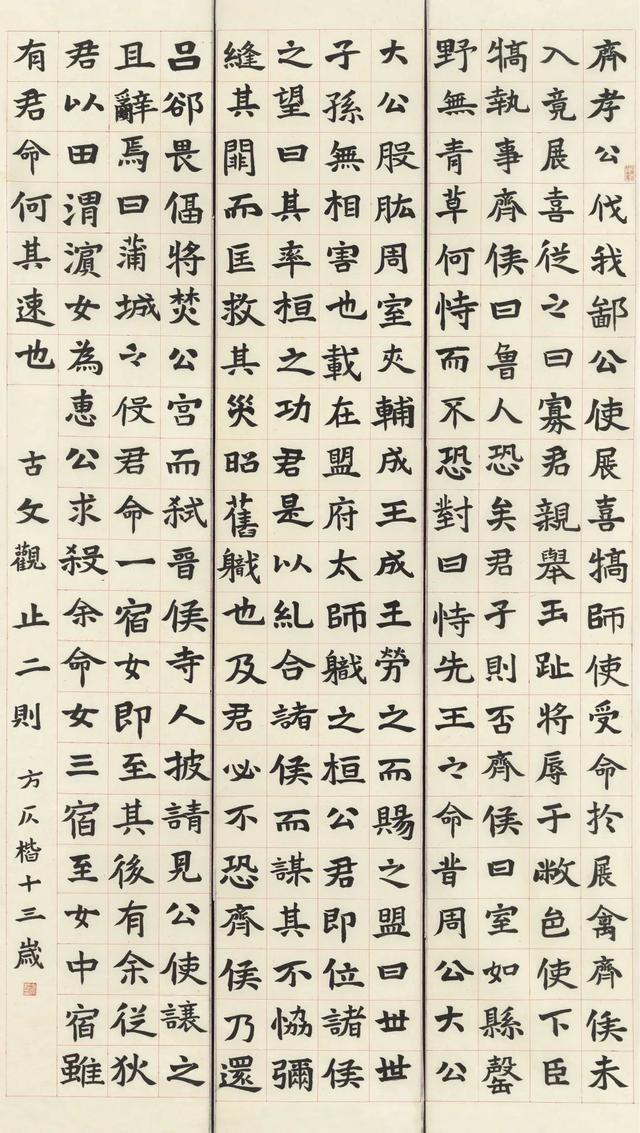 齊孝公伐我鄙公使展喜犒師使受命於展禽齊侯未
入竟展喜從之曰寡君親舉玉趾將辱于敝邑使下臣
犒執事齊侯曰魯人恐矣君子則否齊侯曰室如縣罄
野無青草何恃而不恐對曰恃先王之命昔周公大公
大公股肱周室夾輔成王成王勞之而賜之盟曰世世
子孫無相害也載在盟府太師職之桓公君即位諸侯
之望曰其率桓之功君是以糺合諸侯而謀其不恊彌
縫其闕而匡救其災昭舊職也及君必不恐齊侯乃還
呂郤畏偪將焚公宮而弒晉侯寺人披請見公使讓之
且辭焉曰蒲城之役君命一宿女即至其後有余從狄
君以田渭濱女為惠公求殺余命女三宿至女中宿雖
有君命何其速也
古文觀止二則 方仄楷十三歲